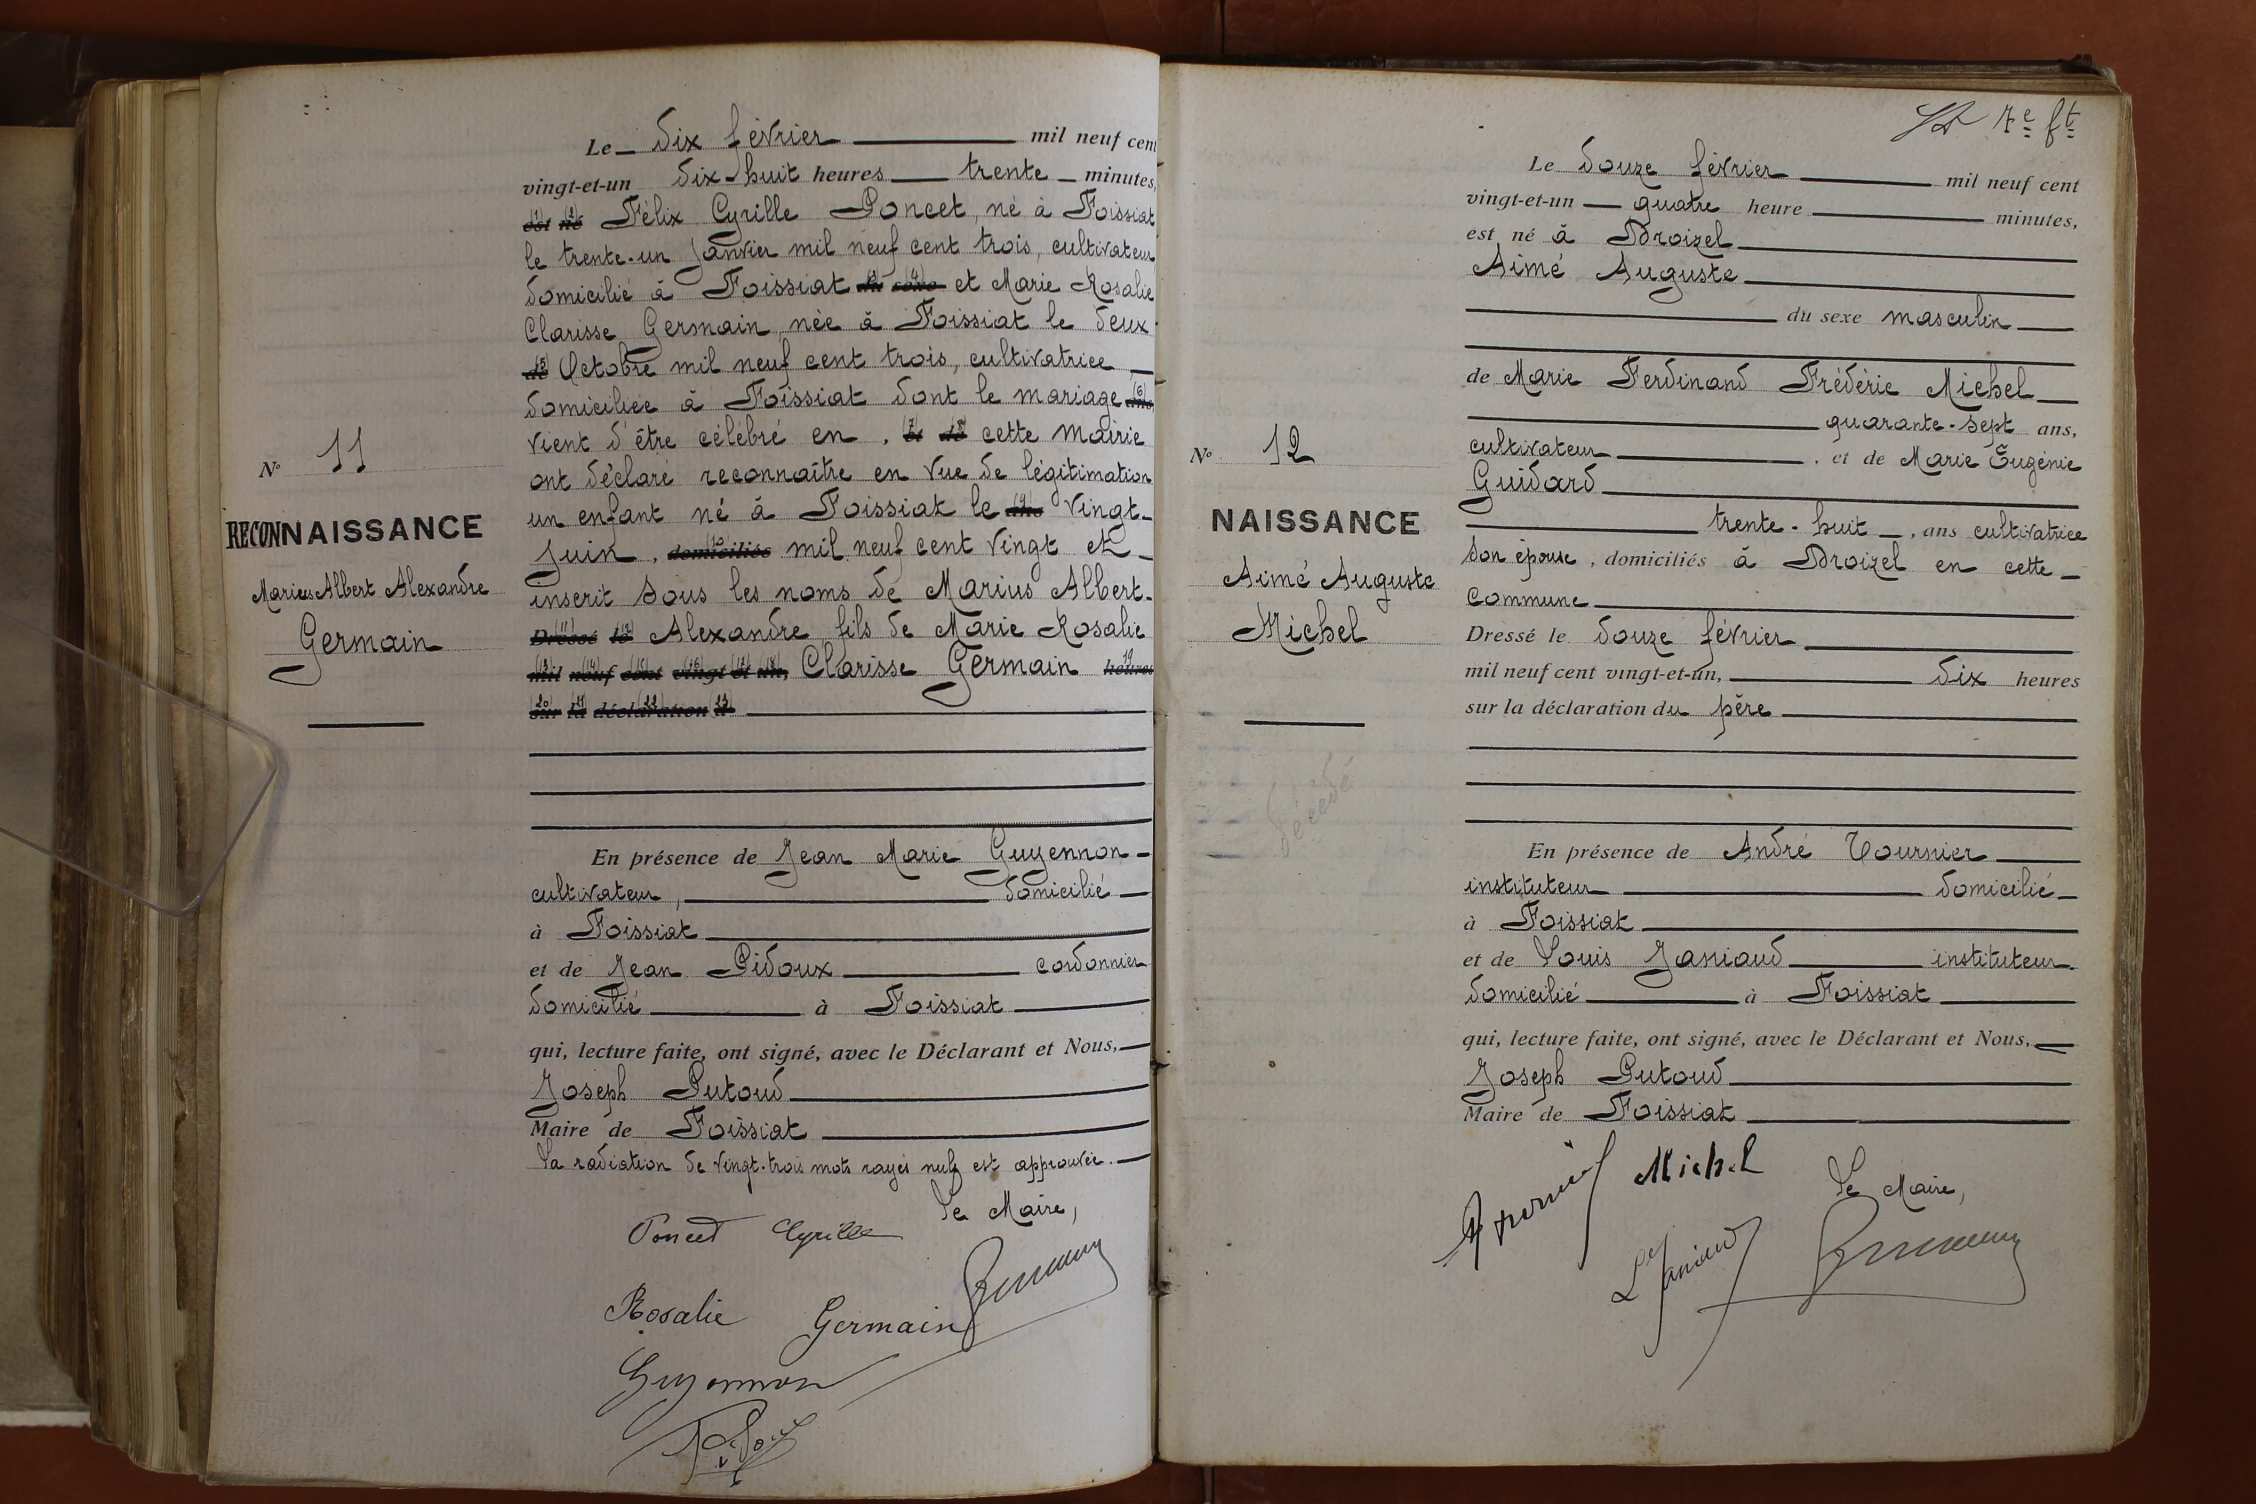 Le dix février mil neuf cent
vingt-et-un dix-huit heures trente minutes,
est né Félix Cyrille Poncet, né à Foissiat
le trente-un Janvier mil neuf cent trois, cultivateur
domicilié à Foissiat du sexe et Marie Rosalie
Clarisse Germain, née à Foissiat le deux
de Octobre mil neuf cent trois, cultivatrice
domiciliée à Foissiat dont le mariage ans,
vient d'être célébré en, et de cette mairie
ont déclaré reconnaître en vue de légitimation
un enfant né à Foissiat le ans vingt-
Juin, domiciliés mil neuf cent vingt et
inscrit sous les noms de Marius Albert-
Dressé le Alexandre, fils de Marie Rosalie
mil neuf cent vingt et un, Clarisse Germain heures
sur la déclaration d
No 11
RECONNAISSANCE
Marius Albert Alexandre
Germain
En présence de Jean Marie Guyennon-
cultivateur, domicilié
à Foissiat
et de Jean Pidoux cordonnier
domicilié à Foissiat
qui, lecture faite, ont signé, avec le Déclarant et Nous,
Joseph Putoud
Maire de Foissiat
La radiation de vingt-trois mots rayés nuls est approuvée.
Le Maire,
Poncet Cyrille
Rosalie Germain
Guyennon
7e ft
Le douze février mil neuf cent
vingt-et-un quatre heure minutes,
est né à Broizel
Aimé Auguste
du sexe masculin
de Marie Ferdinand Frédéric Michel
quarante-sept ans,
cultivateur, et de Marie Eugénie
Guidard
trente-huit, ans cultivatrice
son épouse, domiciliés à Broizel en cette
commune
Dressé le douze février
mil neuf cent vingt-et-un, dix heures
sur la déclaration du père
No 12
NAISSANCE
Aimé Auguste
Michel
décédé
En présence de André Tournier
instituteur domicilié
à Foissiat
et de Louis Janiaud instituteur
domicilié à Foissiat
qui, lecture faite, ont signé, avec le Déclarant et Nous,
Joseph Putoud
Maire de Foissiat
Michel Le Maire,
A Tournier
L Janiaud